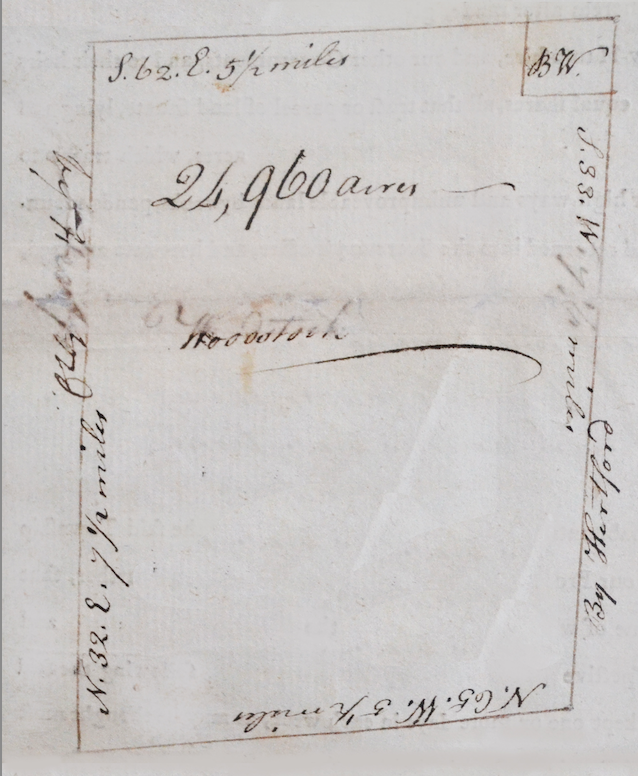 S. 62. E. 5 1/2 miles
BW.
24,960 acres
Woodstock
S. 33. W 7 1/2 miles
By Hartford
N. 65. W. 5 1/2 miles
N. 32. E. 7 1/2 miles
By